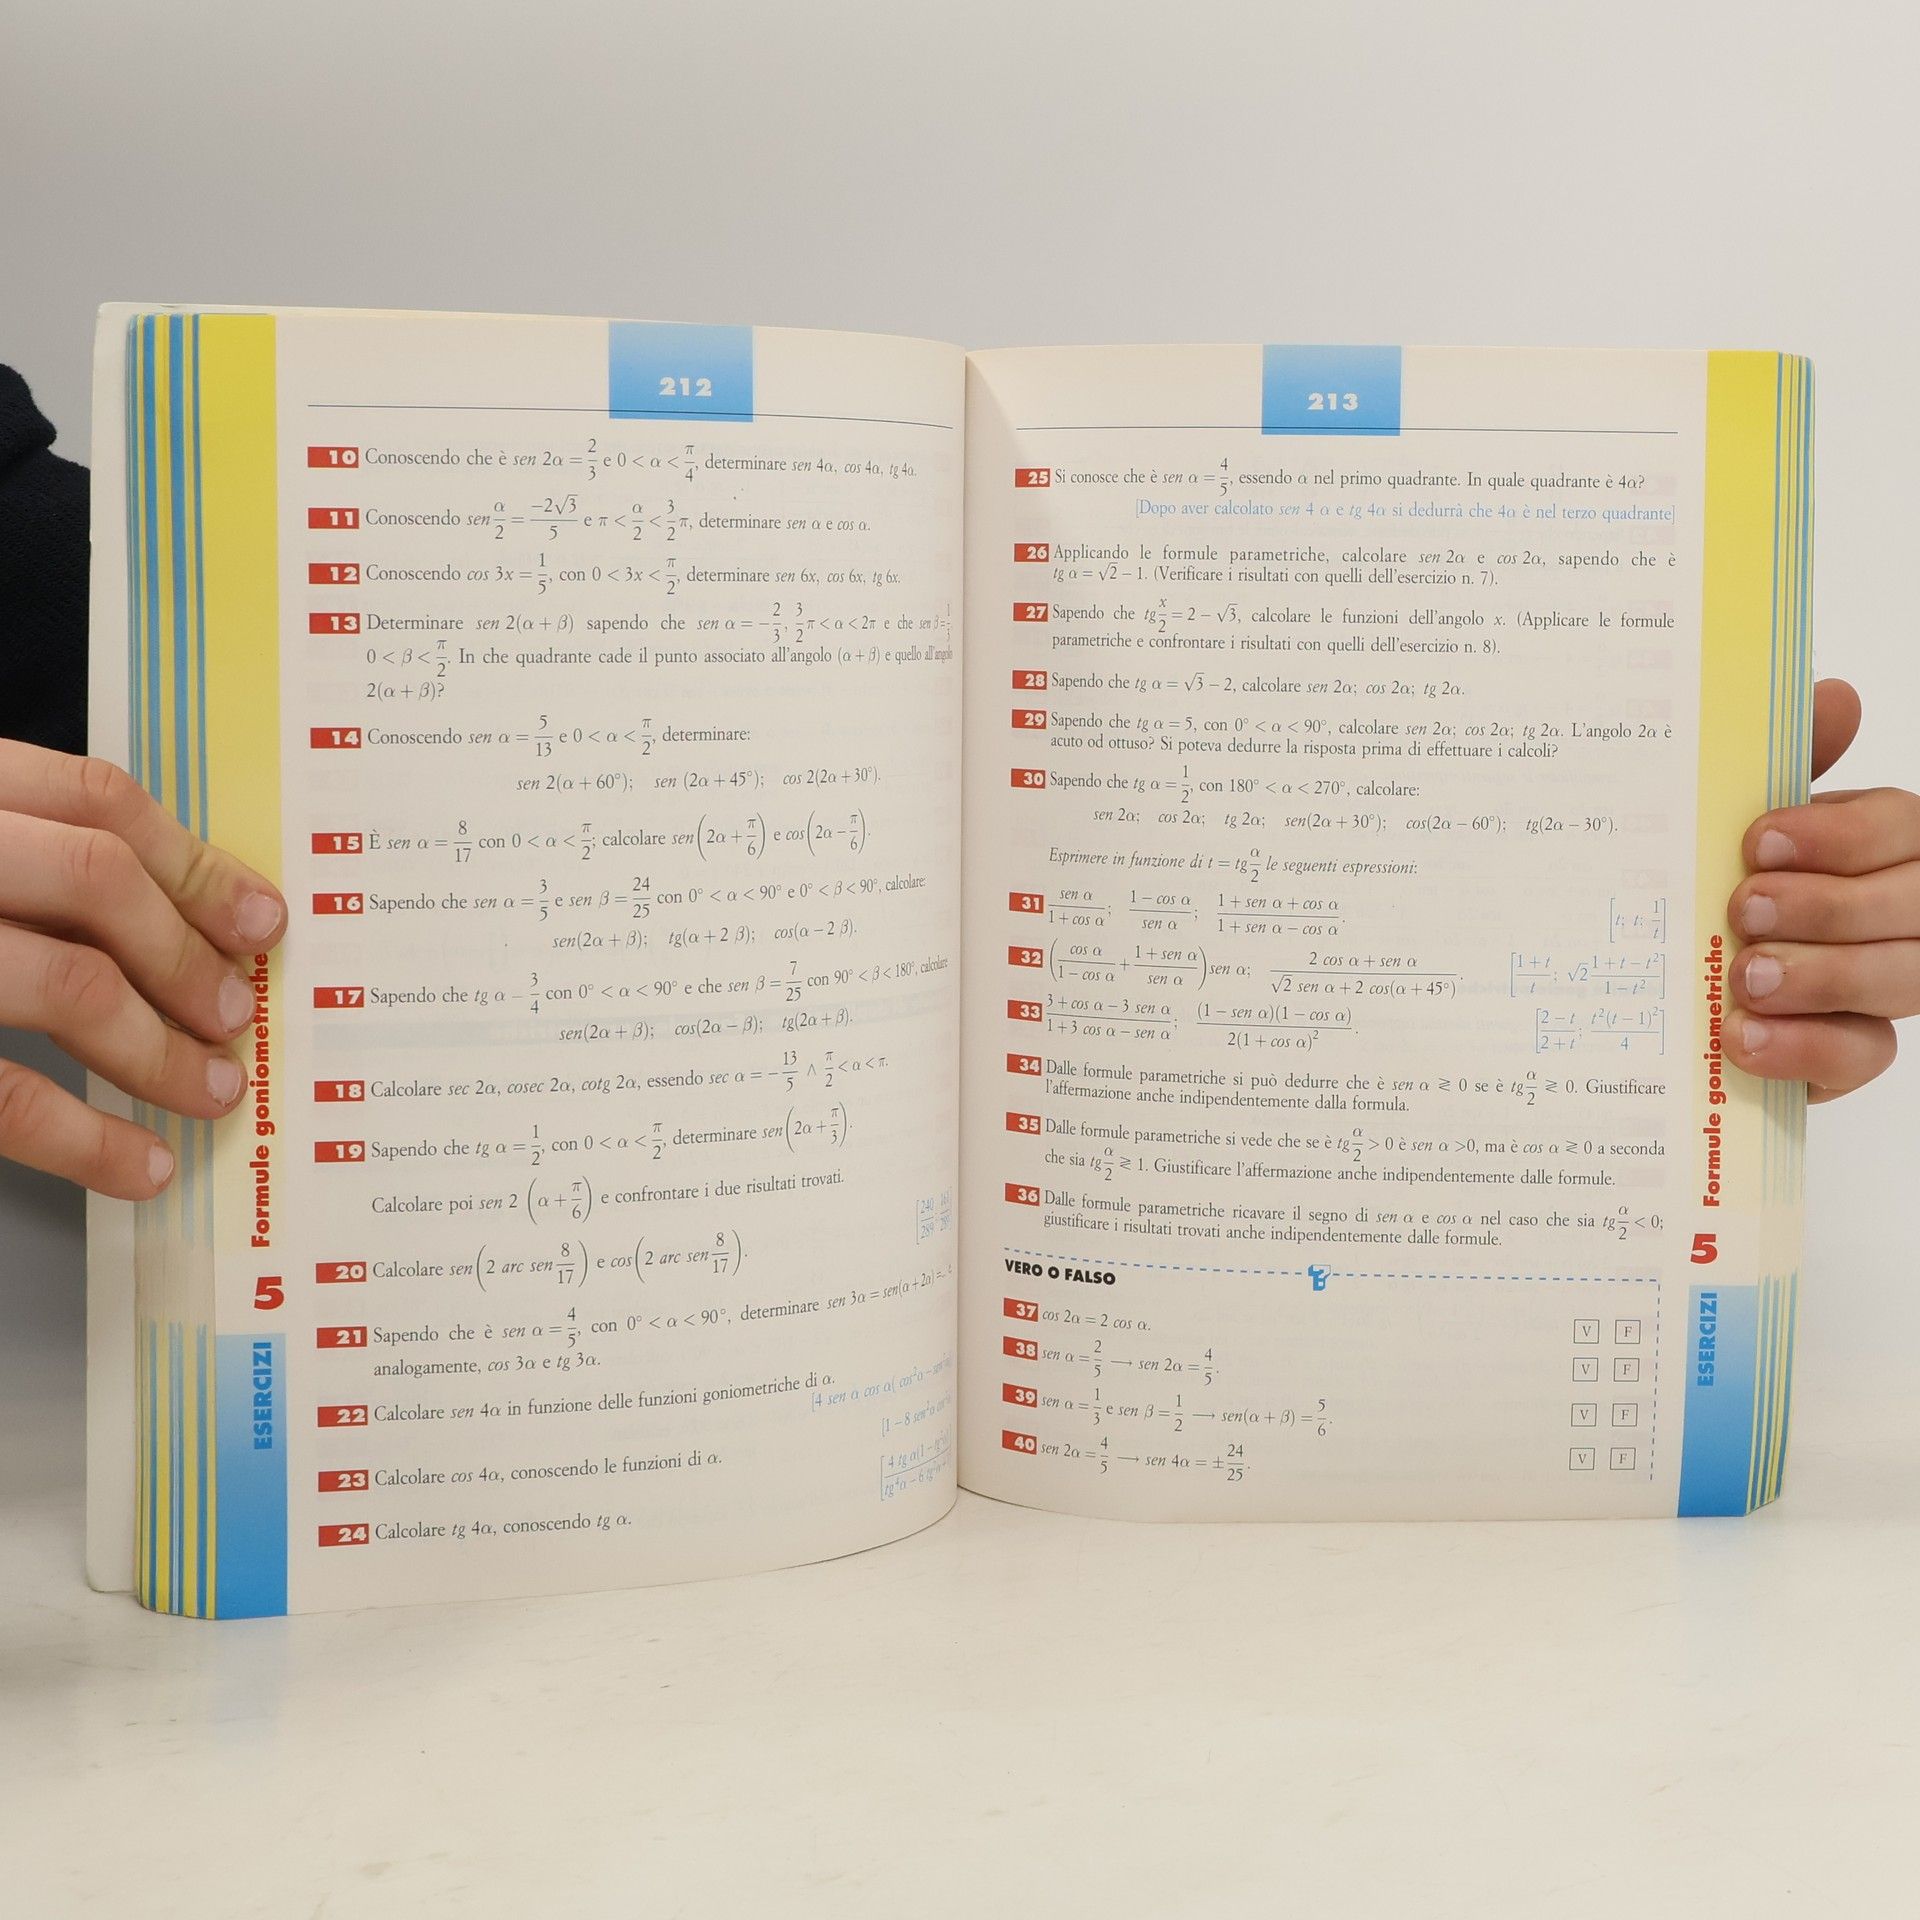 212
10 Conoscendo che è sen 2α = 2/3 e 0 < α < π/4, determinare sen 4α, cos 4α, tg 4α.
11 Conoscendo sen α/2 = -2√3/5 e π < α/2 < 3/2 π, determinare sen α e cos α.
12 Conoscendo cos 3x = 1/5, con 0 < 3x < π/2, determinare sen 6x, cos 6x, tg 6x.
13 Determinare sen 2(α + β) sapendo che sen α = -2/3, 3/2 π < α < 2π e che sen β = 1/3,
0 < β < π/2. In che quadrante cade il punto associato all'angolo (α + β) e quello all'angolo
2(α + β)?
14 Conoscendo sen α = 5/13 e 0 < α < π/2, determinare:
sen 2(α + 60°); sen (2α + 45°); cos 2(2α + 30°).
15 È sen α = 8/17 con 0 < α < π/2; calcolare sen(2α + π/6) e cos(2α - π/6).
16 Sapendo che sen α = 3/5 e sen β = 24/25 con 0° < α < 90° e 0° < β < 90°, calcolare:
sen(2α + β); tg(α + 2 β); cos(α - 2 β).
17 Sapendo che tg α - 3/4 con 0° < α < 90° e che sen β = 7/25 con 90° < β < 180°, calcolare
sen(2α + β); cos(2α - β); tg(2α + β).
18 Calcolare sec 2α, cosec 2α, cotg 2α, essendo sec α = -13/5 ∧ π/2 < α < π.
19 Sapendo che tg α = 1/2, con 0 < α < π/2, determinare sen(2α + π/3).
Calcolare poi sen 2 (α + π/6) e confrontare i due risultati trovati.
[240/289; 161/289]
20 Calcolare sen(2 arc sen 8/17) e cos(2 arc sen 8/17).
21 Sapendo che è sen α = 4/5, con 0° < α < 90°, determinare sen 3α = sen(α + 2α) =... e
analogamente, cos 3α e tg 3α.
22 Calcolare sen 4α in funzione delle funzioni goniometriche di α.
[4 sen α cos α( cos²α - sen²α)]
[1 - 8 sen²α cos²α]
23 Calcolare cos 4α, conoscendo le funzioni di α.
[4 tg α(1 - tg²α)/tg⁴α - 6 tg²α + 1]
24 Calcolare tg 4α, conoscendo tg α.
Formule goniometriche
5
ESERCIZI
213
25 Si conosce che è sen α = 4/5, essendo α nel primo quadrante. In quale quadrante è 4α?
[Dopo aver calcolato sen 4 α e tg 4α si dedurrà che 4α è nel terzo quadrante]
26 Applicando le formule parametriche, calcolare sen 2α e cos 2α, sapendo che è
tg α = √2 - 1. (Verificare i risultati con quelli dell'esercizio n. 7).
27 Sapendo che tg x/2 = 2 - √3, calcolare le funzioni dell'angolo x. (Applicare le formule
parametriche e confrontare i risultati con quelli dell'esercizio n. 8).
28 Sapendo che tg α = √3 - 2, calcolare sen 2α; cos 2α; tg 2α.
29 Sapendo che tg α = 5, con 0° < α < 90°, calcolare sen 2α; cos 2α; tg 2α. L'angolo 2α è
acuto od ottuso? Si poteva dedurre la risposta prima di effettuare i calcoli?
30 Sapendo che tg α = 1/2, con 180° < α < 270°, calcolare:
sen 2α; cos 2α; tg 2α; sen(2α + 30°); cos(2α - 60°); tg(2α - 30°).
Esprimere in funzione di t = tg α/2 le seguenti espressioni:
31 sen α/1 + cos α; 1 - cos α/sen α; 1 + sen α + cos α/1 + sen α - cos α. [t; t; 1/t]
32 (cos α/1 - cos α + 1 + sen α/sen α) sen α; 2 cos α + sen α/√2 sen α + 2 cos(α + 45°). [1 + t/t; √2 1 + t - t²/1 - t²]
33 3 + cos α - 3 sen α/1 + 3 cos α - sen α; (1 - sen α)(1 - cos α)/2(1 + cos α)². [2 - t/2 + t; t²(t - 1)²/4]
34 Dalle formule parametriche si può dedurre che è sen α ≷ 0 se è tg α/2 ≷ 0. Giustificare
l'affermazione anche indipendentemente dalla formula.
35 Dalle formule parametriche si vede che se è tg α/2 > 0 è sen α >0, ma è cos α ≷ 0 a seconda
che sia tg α/2 ≷ 1. Giustificare l'affermazione anche indipendentemente dalle formule.
36 Dalle formule parametriche ricavare il segno di sen α e cos α nel caso che sia tg α/2 < 0;
giustificare i risultati trovati anche indipendentemente dalle formule.
VERO O FALSO ?
37 cos 2α = 2 cos α. V F
38 sen α = 2/5 → sen 2α = 4/5. V F
39 sen α = 1/3 e sen β = 1/2 → sen(α + β) = 5/6. V F
40 sen 2α = 4/5 → sen 4α = ± 24/25. V F
Formule goniometriche
5
ESERCIZI